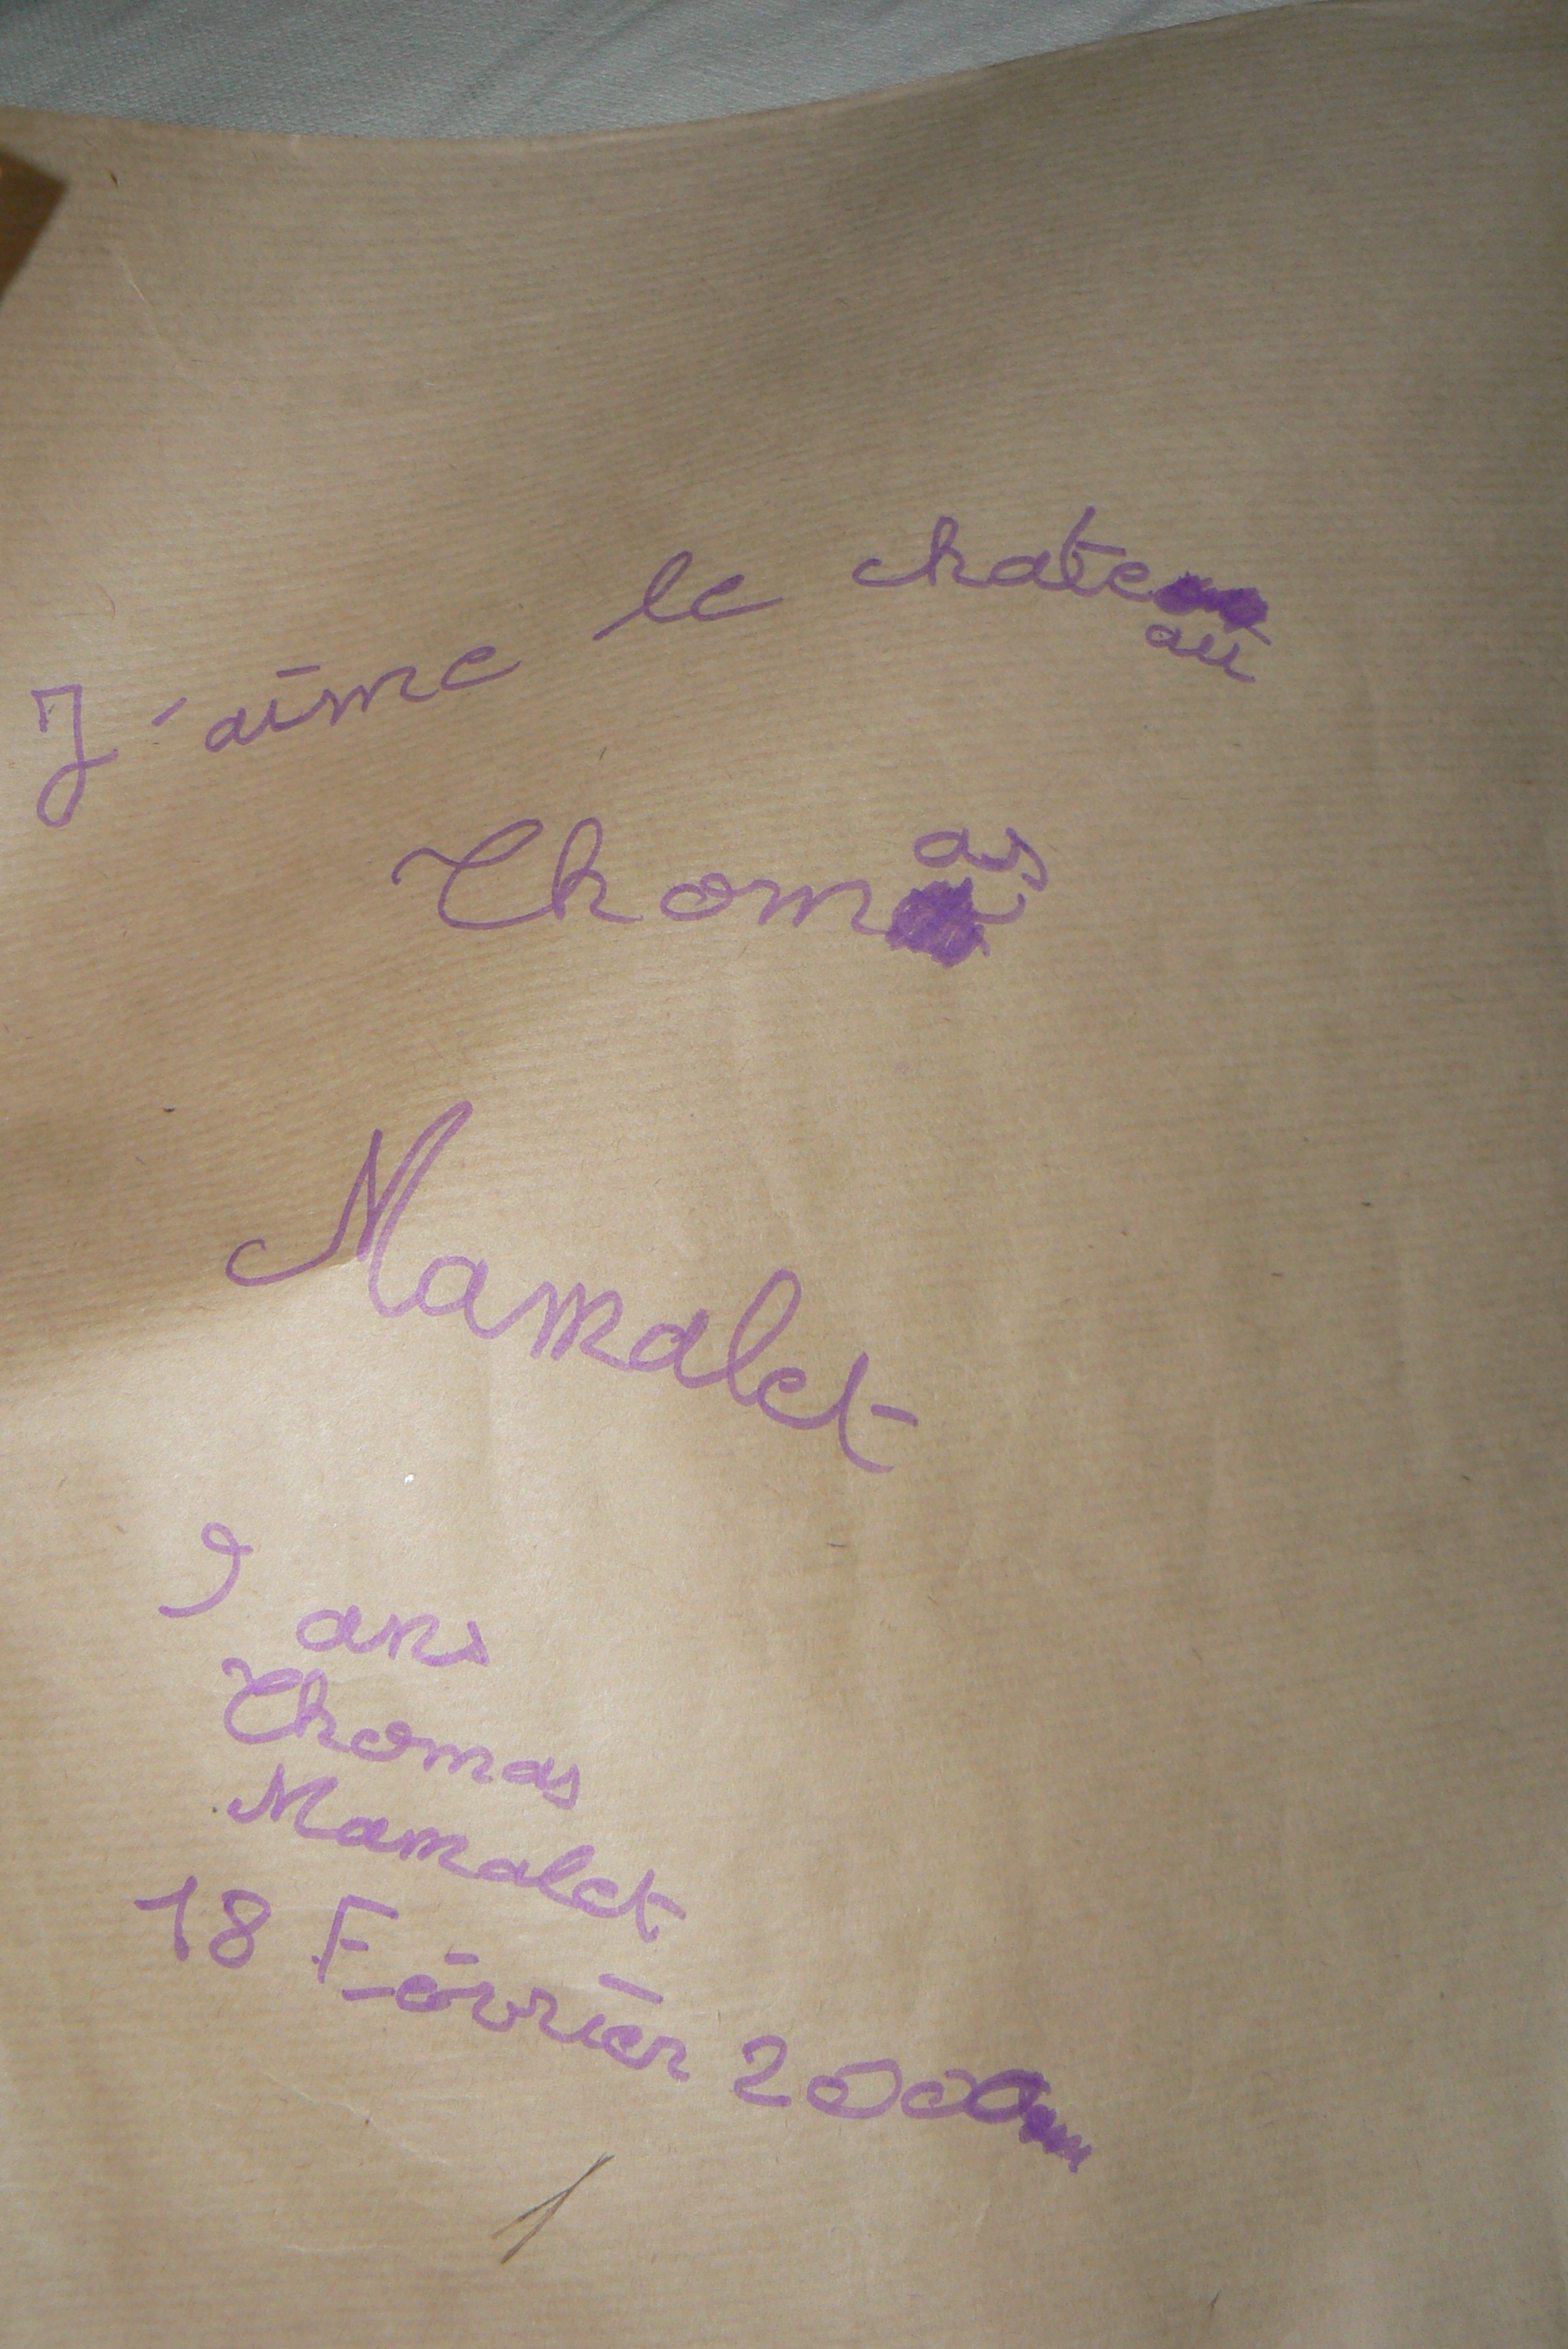 J'aime le chateau
Thomas
Mamalet
9 ans
Thomas
Mamalet
18 Février 2000